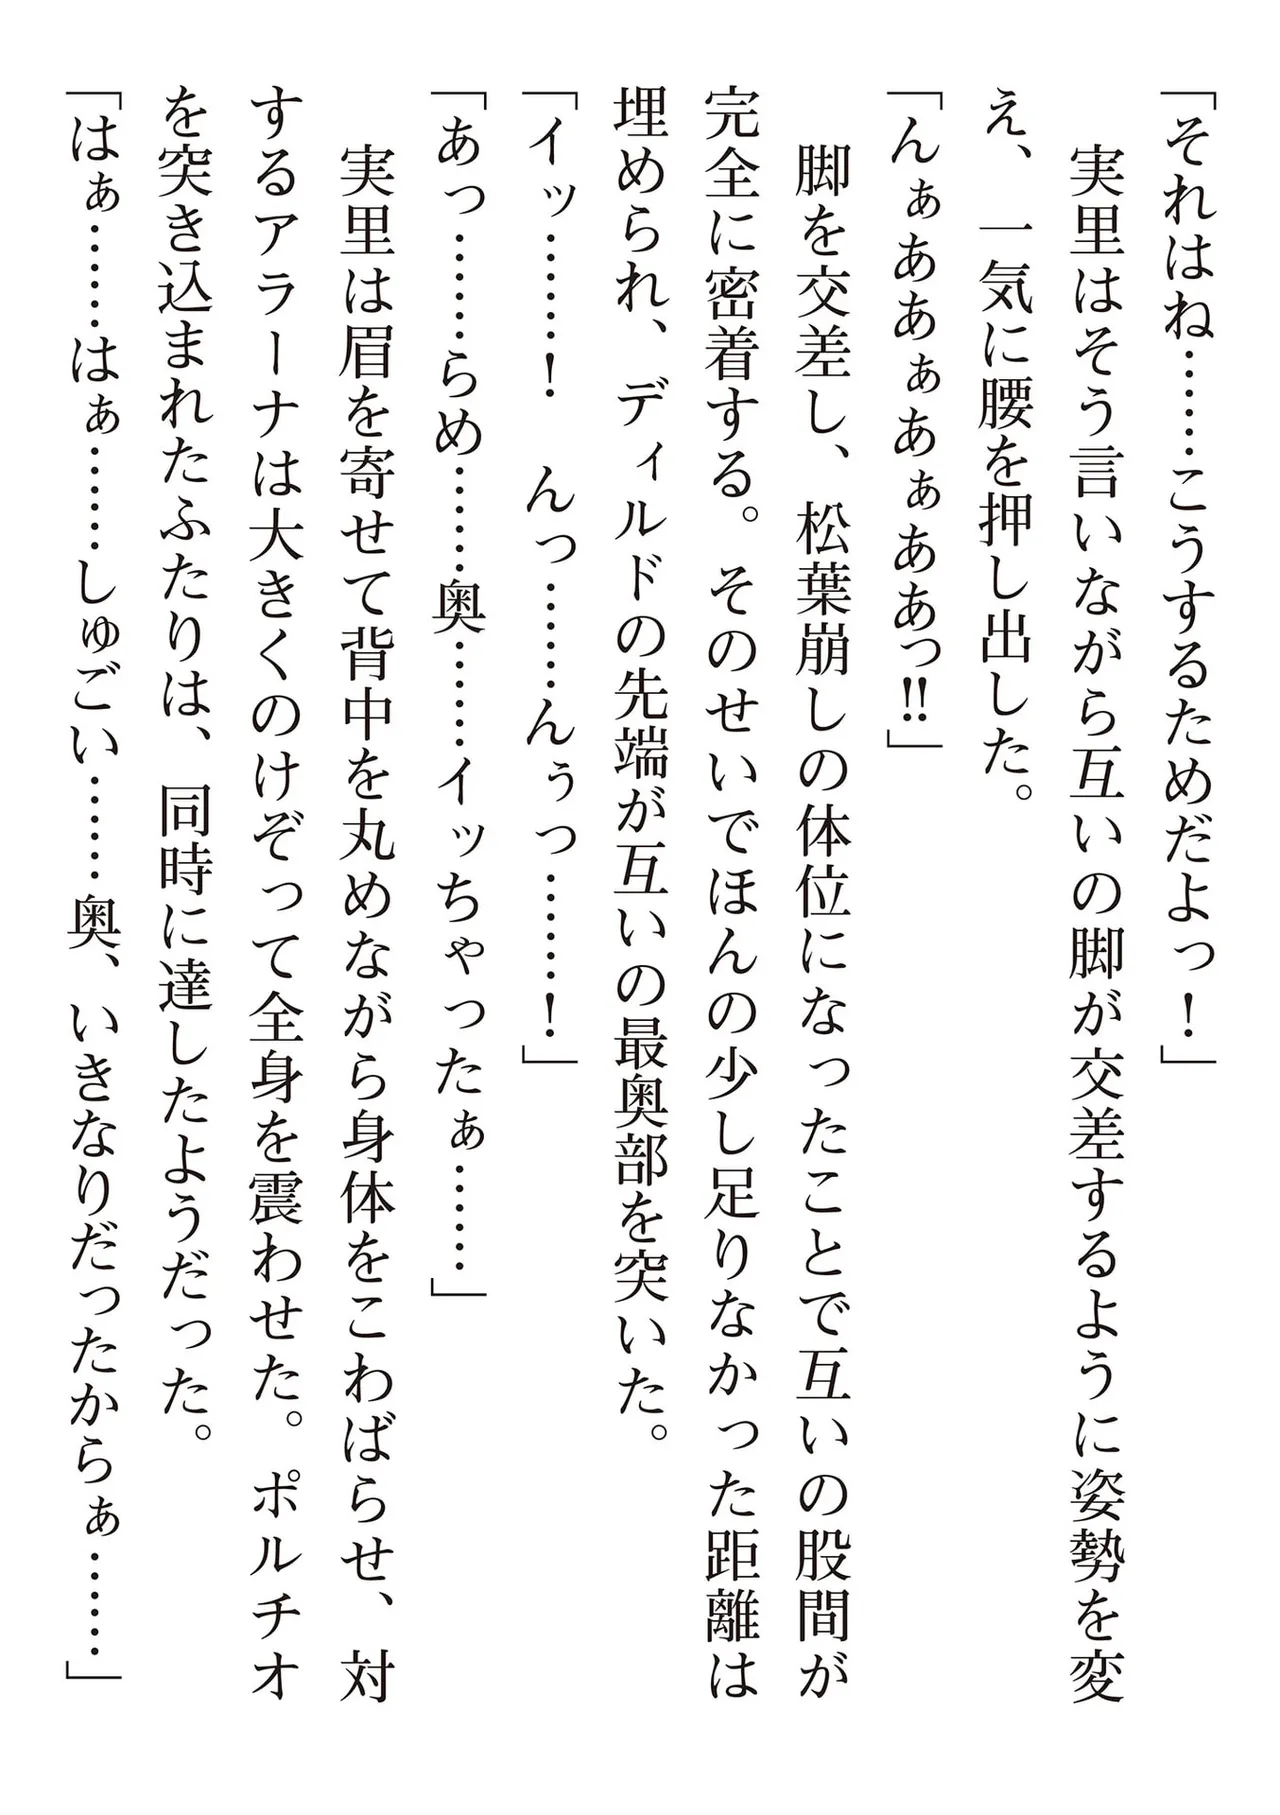 「それはね………こうするためだよっ！」
　実里はそう言いながら互いの脚が交差するように姿勢を変
え、一気に腰を押し出した。
「んぁああぁあぁああっ!!」
　脚を交差し、松葉崩しの体位になったことで互いの股間が
完全に密着する。そのせいでほんの少し足りなかった距離は
埋められ、ディルドの先端が互いの最奥部を突いた。
「イッ………！　んっ………んぅっ………！」
「あっ………らめ………奥………イッちゃったぁ………」
　実里は眉を寄せて背中を丸めながら身体をこわばらせ、対
するアラーナは大きくのけぞって全身を震わせた。ポルチオ
を突き込まれたふたりは、同時に達したようだった。
「はぁ………はぁ………しゅごい………奥、いきなりだったからぁ………」